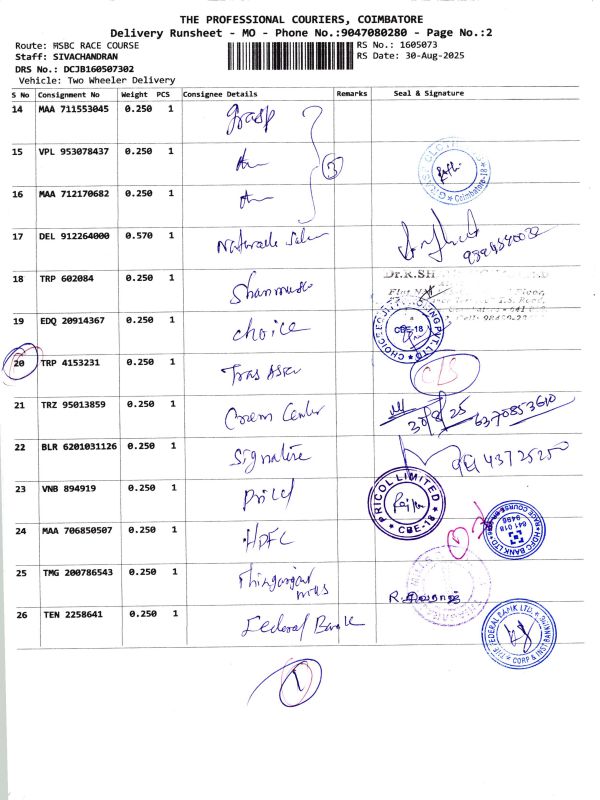 THE PROFESSIONAL COURIERS, COIMBATORE
Delivery Runsheet - MO - Phone No.:9047080280 - Page No.:2
Route: HSBC RACE COURSE
RS No.: 1605073
Staff: SIVACHANDRAN
RS Date: 30-Aug-2025
DRS No.: DCJB160507302
Vehicle: Two Wheeler Delivery
S No Consignment No Weight PCS Consignee Details Remarks Seal & Signature
14 MAA 711553045 0.250 1 Grasp
15 VPL 953078437 0.250 1
3
16 MAA 712170682 0.250 1
Coimbatore-18
17 DEL 912264000 0.570 1 Naturals
18 TRP 602084 0.250 1
Dr.R.SH
19 EDQ 20914367 0.250 1 Choice
CBE-18
20 TRP 4153231 0.250 1 C/S
21 TRZ 95013859 0.250 1 Center 30/8/25 6370853610
22 BLR 6201031126 0.250 1 Signature
23 VNB 894919 0.250 1 Pricol PRICOL LIMITED CBE-18
24 MAA 706850507 0.250 1 HDFC HDFC BANK LTD
641 018
25 TMG 200786543 0.250 1
26 TEN 2258641 0.250 1 Federal Bank THE FEDERAL BANK LTD. CORP & INST.BANKING
1